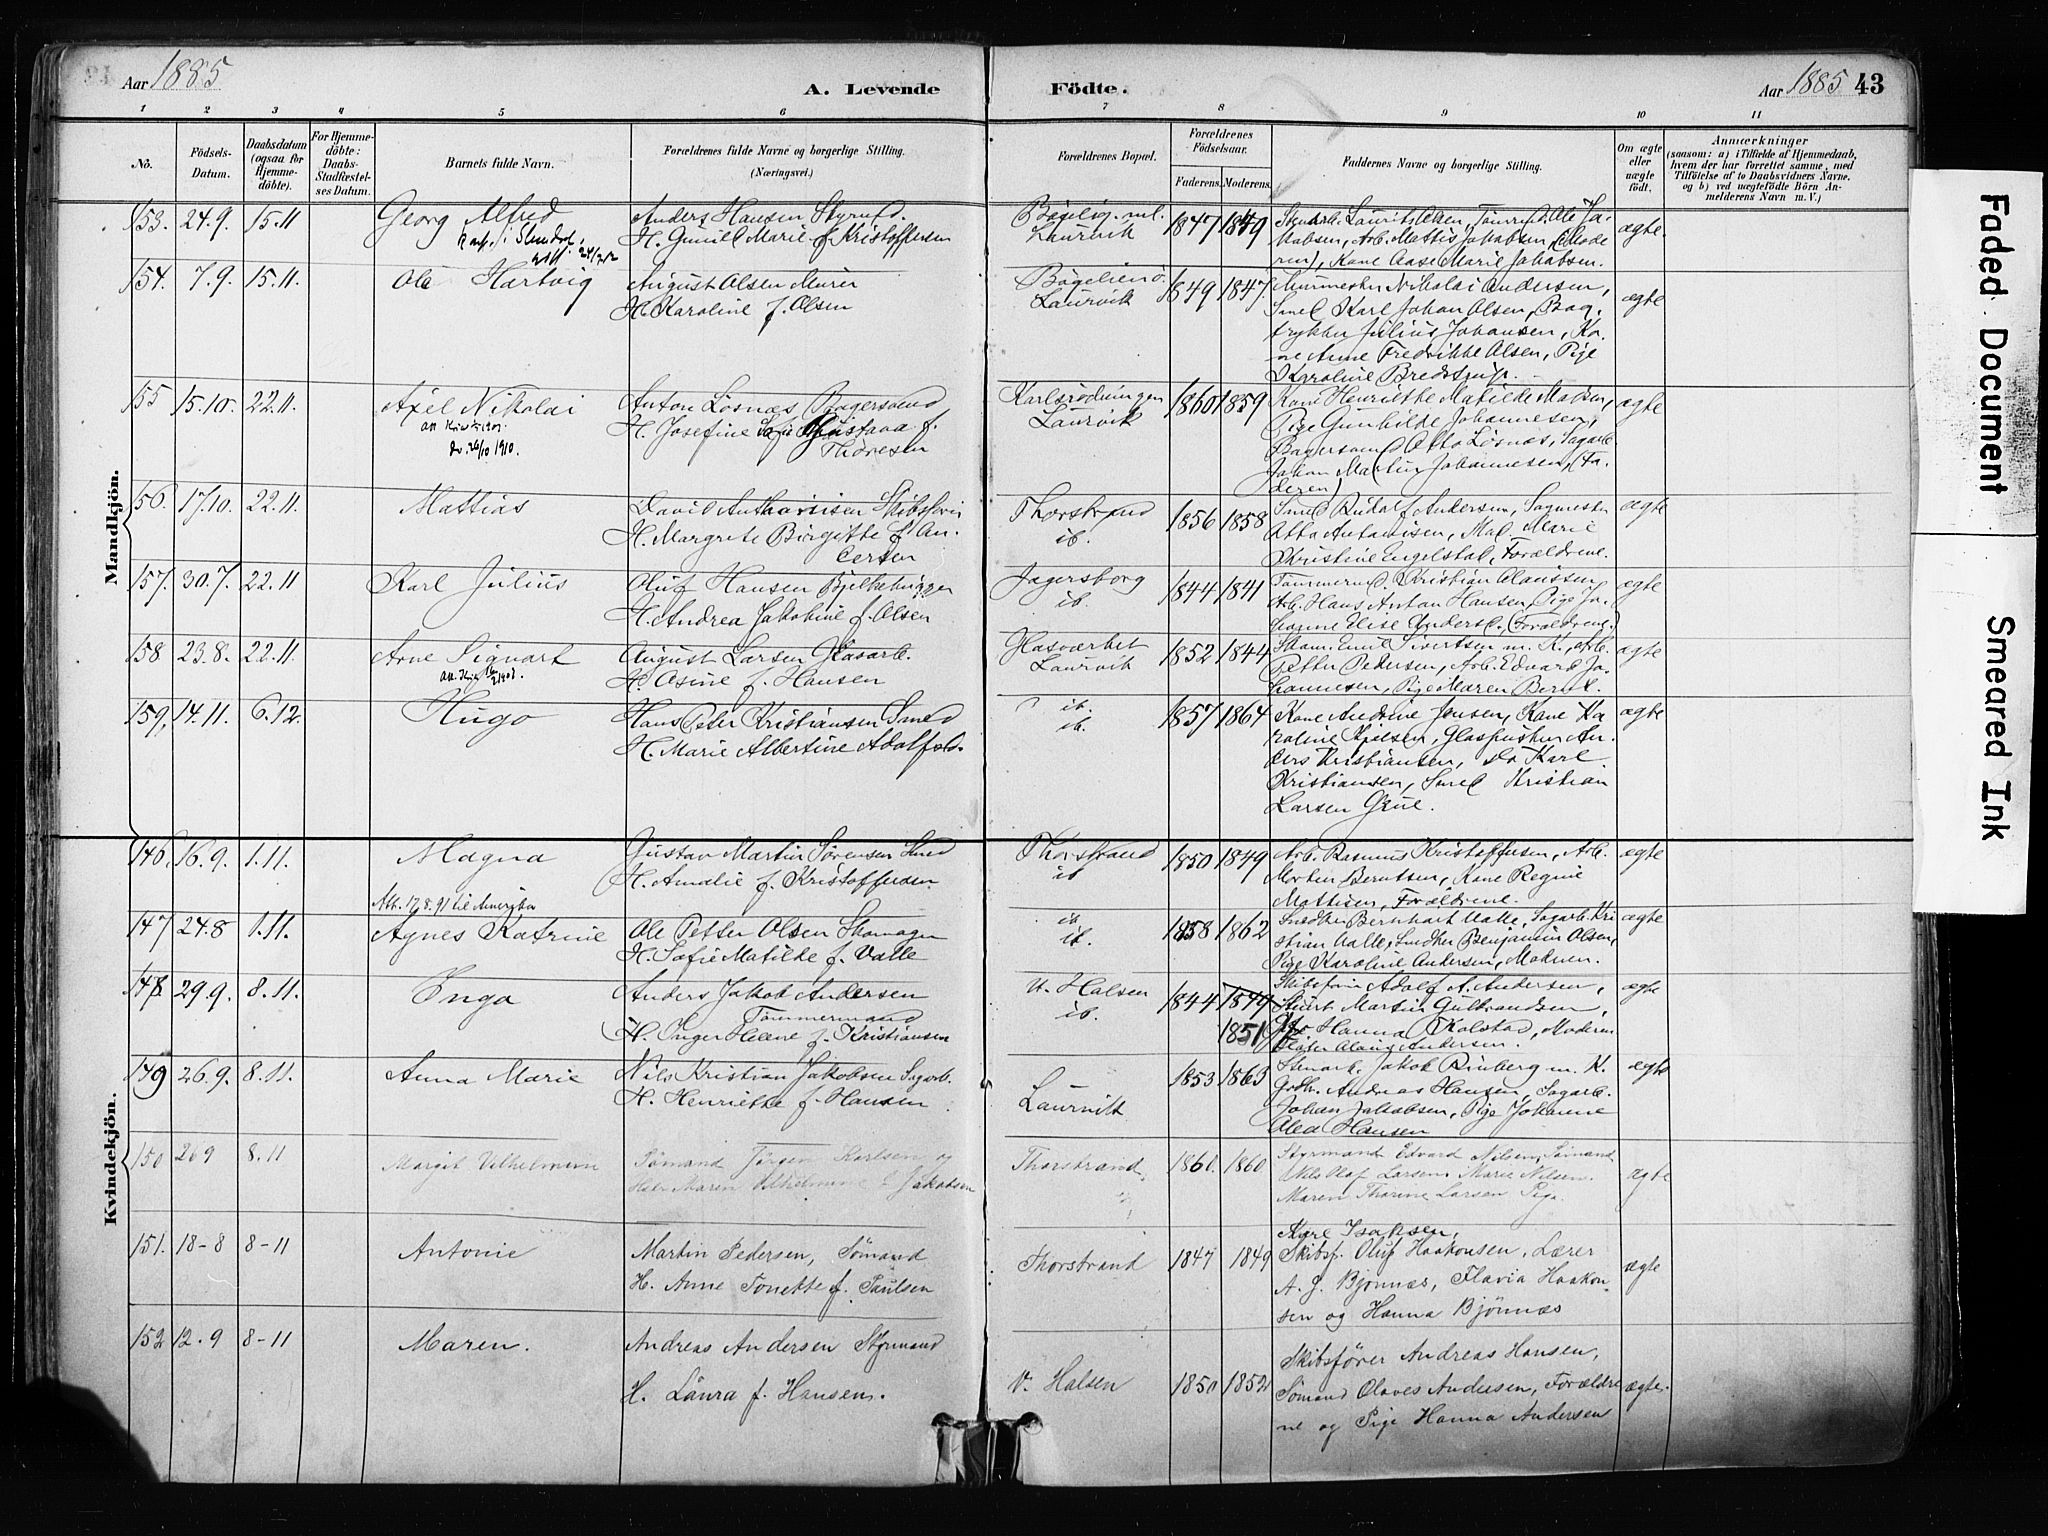 Aar 1885
A. Levende
Födte.
Aar 1885 43
1 2 3 4 5 6 7 8 9 10 11
No.
Födsels-
Datum.
Daabsdatum
(ogsaa for
Hjemme-
döbte).
For Hjemme-
döbte:
Daabs-
Stadfæstel-
ses Datum.
Barnets fulde Navn.
Forældrenes fulde Navne og borgerlige Stilling.
(Næringsvei.)
Forældrenes Bopæl.
Forældrenes
Födselsaar.
Faderens. Moderens.
Faddernes Navne og borgerlige Stilling.
Om ægte
eller
uægte
födt.
Anmærkninger
(saasom: a) i Tilfælde af Hjemmedaab,
hvem der har forrettet samme, med
Tilföielse af to Daabsvidners Navne,
og b) ved uægtefödte Börn An-
melderens Navn m. V.)
Mandkjön.
153. 24.9. 15.11 Georg Alfred
Anders Hansen Styrmd.
H. Gunild Marie f. Kristoffersen
Laurvik
1847 1849
ren), Kone Aase Marie Jakobsen.
ægte
154. 7.9. 15.11. Ole Hartvig
August Olsen Murer
H. Karoline f. Olsen
Laurvik
1849 1847
Murmester Nikolai Andersen,
Smed Karl Johan Olsen, Bog-
trykker Julius Johansen, Ko-
ne Anne Fredrikke Olsen, Pige
Karoline Bredstrup.
ægte
155 15.10. 22.11. Axel Nikolai
26/10 1910.
Anton Løsnæs Bagersvend
H. Josefine Sofie Gustava f.
Thoresen
Karlsrødningen
Laurvik
1860 1859
Kone Henriette Matilde Madsen,
Pige Gunhilde Johannesen,
Bagersvend Otto Løsnæs, Sagarb.
Johan Martin Johannesen, (Fa-
deren)
ægte
156. 17.10. 22.11. Mattias
H. Margrete Birgitte f. An-
dersen
Thorstrand
ib.
1856 1858
Smed Rudolf Andersen, Sagmester
Otto Antonisen, Mad. Marie
Kristine Engelstad, Forældrene.
ægte
157. 30.7. 22.11 Karl Julius
Oluf Hansen Bjelkehugger
H. Andrea Jakobine f. Olsen
Jagersborg
ib.
1844 1841
Tømmermd. Kristian Olaussen,
Arb. Hans Anton Hansen, Pige Jo-
hanne Elise Andersd. (Forældrene.)
ægte
158 23.8. 22.11. Arne Sigvart
August Larsen Glasarb.
H. Osine f. Hansen
Glasværket
Laurvik
1852 1844
Skom. Emil Sivertsen m. K., Arb.
Petter Pedersen, Arb. Edvard Jo-
hannesen, Pige Maren Berntd.
ægte
159. 14.11. 6.12. Hugo
Hans Peter Kristiansen Smed
H. Marie Albertine Adolfsd.
ib.
ib.
1857 1864
Kone Andrine Jensen, Kone Ka-
roline Kjelsen, Glaspuster An-
ders Kristiansen, do Karl
Kristiansen, Smed Kristian
Larsen Grue.
ægte
Kvindekjön.
146. 16.9. 1.11. Magna
Att. 17/8.91 til Amerika
Gustav Martin Sørensen Smed
H. Amalie f. Kristoffersen.
Thorstrand
ib
1850 1849
Arb. Rasmus Kristoffersen, Arb.
Morten Berntsen, Kone Regine
Mattisen, Forældrene.
ægte
147 24.8 1.11. Agnes Katrine
Ole Petter Olsen Skomager
H. Sofie Matilde f. Valle
ib
ib.
1858 1862
Snedker Bernhart Valle, Sagarb. Kri
stian Valle, Snedker Benjamin Olsen,
Pige Karoline Andersen, Moderen.
ægte
148. 29.9. 8.11. Inga
Anders Jakob Andersen
Tømmermand
H. Inger Helene f. Kristiansen
U. Halsen
ib.
1844 1849
1851
Skibsfører Adolf A. Andersen,
Martin Gulbrandsen,
Hanna Kolstad, Moderen
ægte
149 26.9. 8.11. Anna Marie
Nils Kristian Jakobsen Sagarb.
H. Henriette f. Hansen
Laurvik
1853 1863
Stenarb. Jakob Rinberg m. K.
Grdbr. Andreas Hansen, Sagarb.
Johan Jakobsen, Pige Johanne
Olea Hansen
ægte
150 26 9 8.11 Margit Vilhelmine
Sømand Jørgen Karlsen og
Maren Vilhelmine f Jakobsen
Thorstrand
1860 1860
Styrmand Edvard Nilsen, Sømand
Olaf Larsen, Marie Nilsen.
Maren Thorine Larsen Pige.
ægte
151. 18-8 8-11 Antonie
Martin Pedersen, Sømand
H. Anne Tonette f. Paulsen
Thorstrand
1847 1849
Kyrl Isaksen,
Skibsf. Oluf Haakonsen, Lærer
A. J. Bjønnæs, Flavia Haakon-
sen og Hanna Bjønnæs
ægte
152 12.9 8-11 Maren.
Andreas Andersen Styrmand
H. Laura f. Hansen.
V. Halsen
1850 1852
Skibsfører Andreas Hansen,
Sømand Olaves Andersen, Forældre
ne og Pige Hanna Andersen
ægte.
Faded Document
Smeared Ink